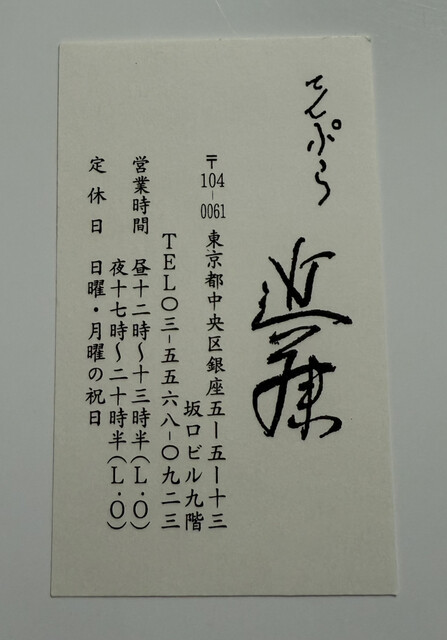 てんぷら 近藤
〒104-0061 東京都中央区銀座五ー五ー十三
坂口ビル九階
TEL〇三-五五六八-〇九二三
営業時間 昼十二時〜十三時半(L.O)
夜十七時〜二十時半(L.O)
定休日 日曜・月曜の祝日